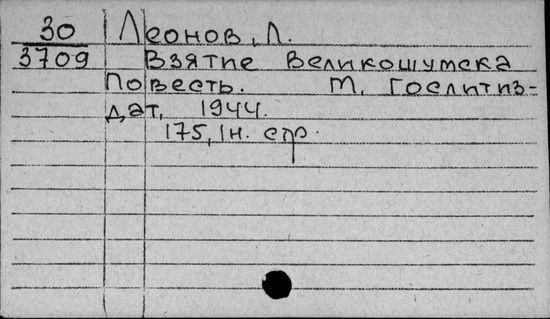 30 Леонов, Л.
3709 Взятие Великошумска
Повесть. М, Гослитиз-
дат, 1944.
175, 1н. стр.